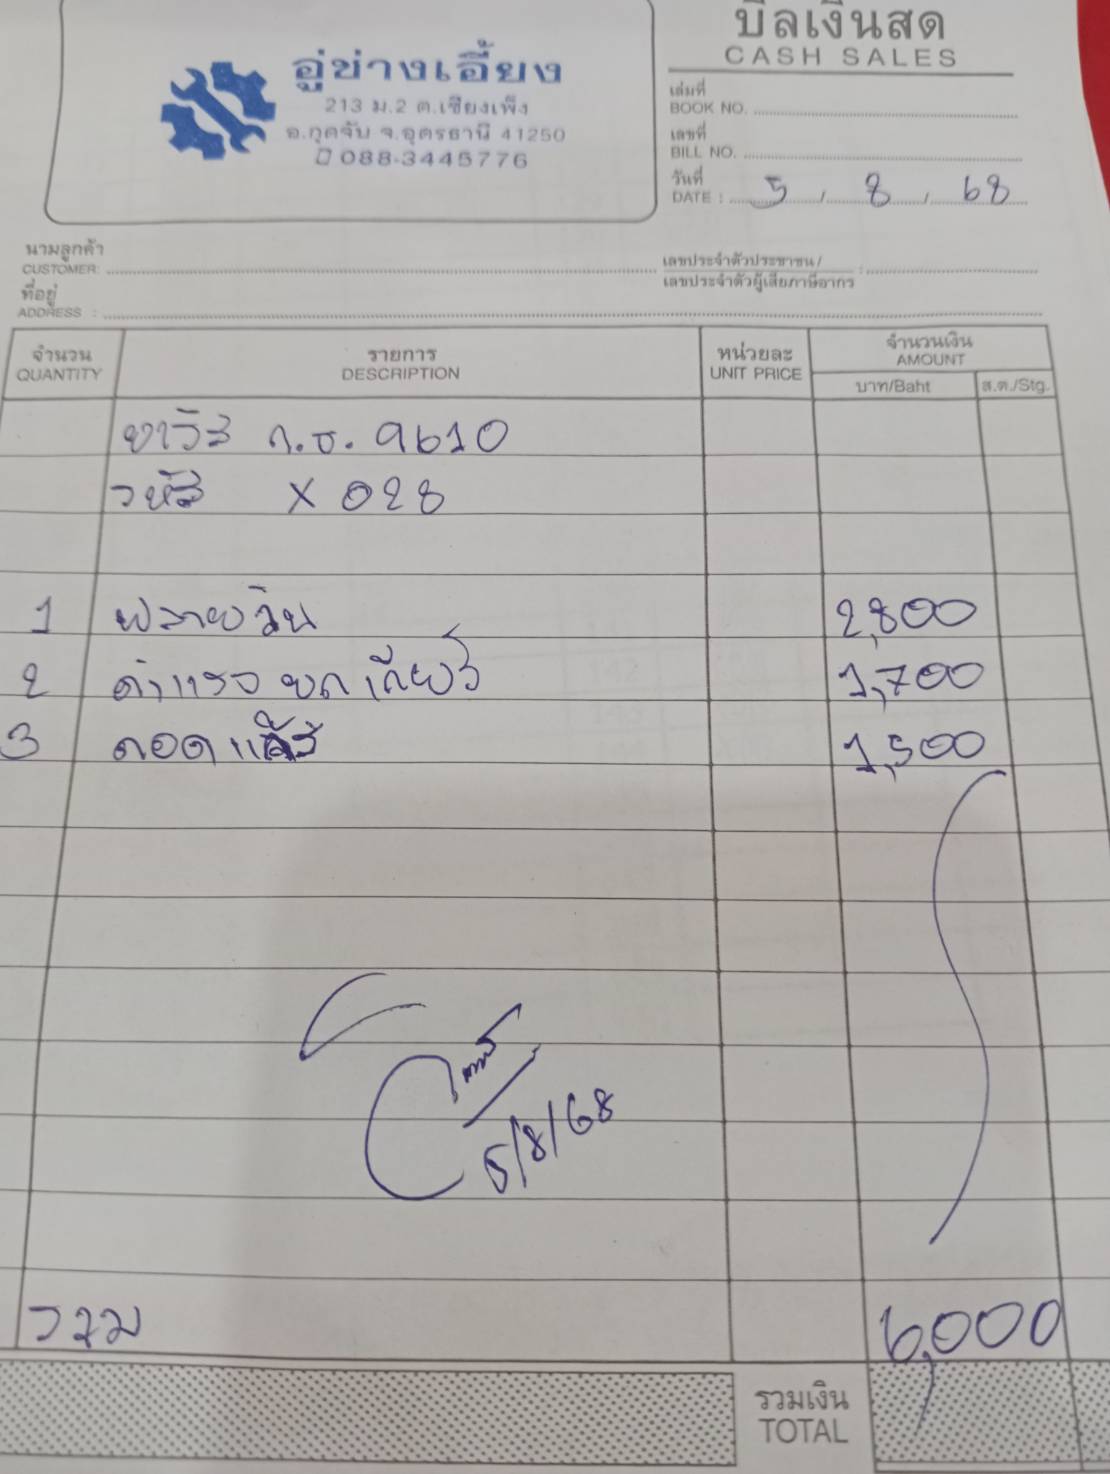 บิลเงินสด
CASH SALES
อู่ช่างเอี้ยง
213 ม.2 ต.เชียงเพ็ง
อ.กุดจับ จ.อุดรธานี 41250
088-3445776
เล่มที่
BOOK NO.
เลขที่
BILL NO.
วันที่
DATE : 5 / 8 / 68
นามลูกค้า
CUSTOMER:
เลขประจำตัวประชาชน/
เลขประจำตัวผู้เสียภาษีอากร :
ที่อยู่
ADDRESS :
จำนวน รายการ หน่วยละ จำนวนเงิน
QUANTITY DESCRIPTION UNIT PRICE AMOUNT
บาท/Baht ส.ต./Stg.
ยาริส ก.ธ. 9610
รหัส X 028
1 ฟลายวีน 2,800
2 ค่าแรงยกเกียร์ 1,700
3 ถอดแอร์ 1,500
5/8/68
รวม 6,000
รวมเงิน
TOTAL